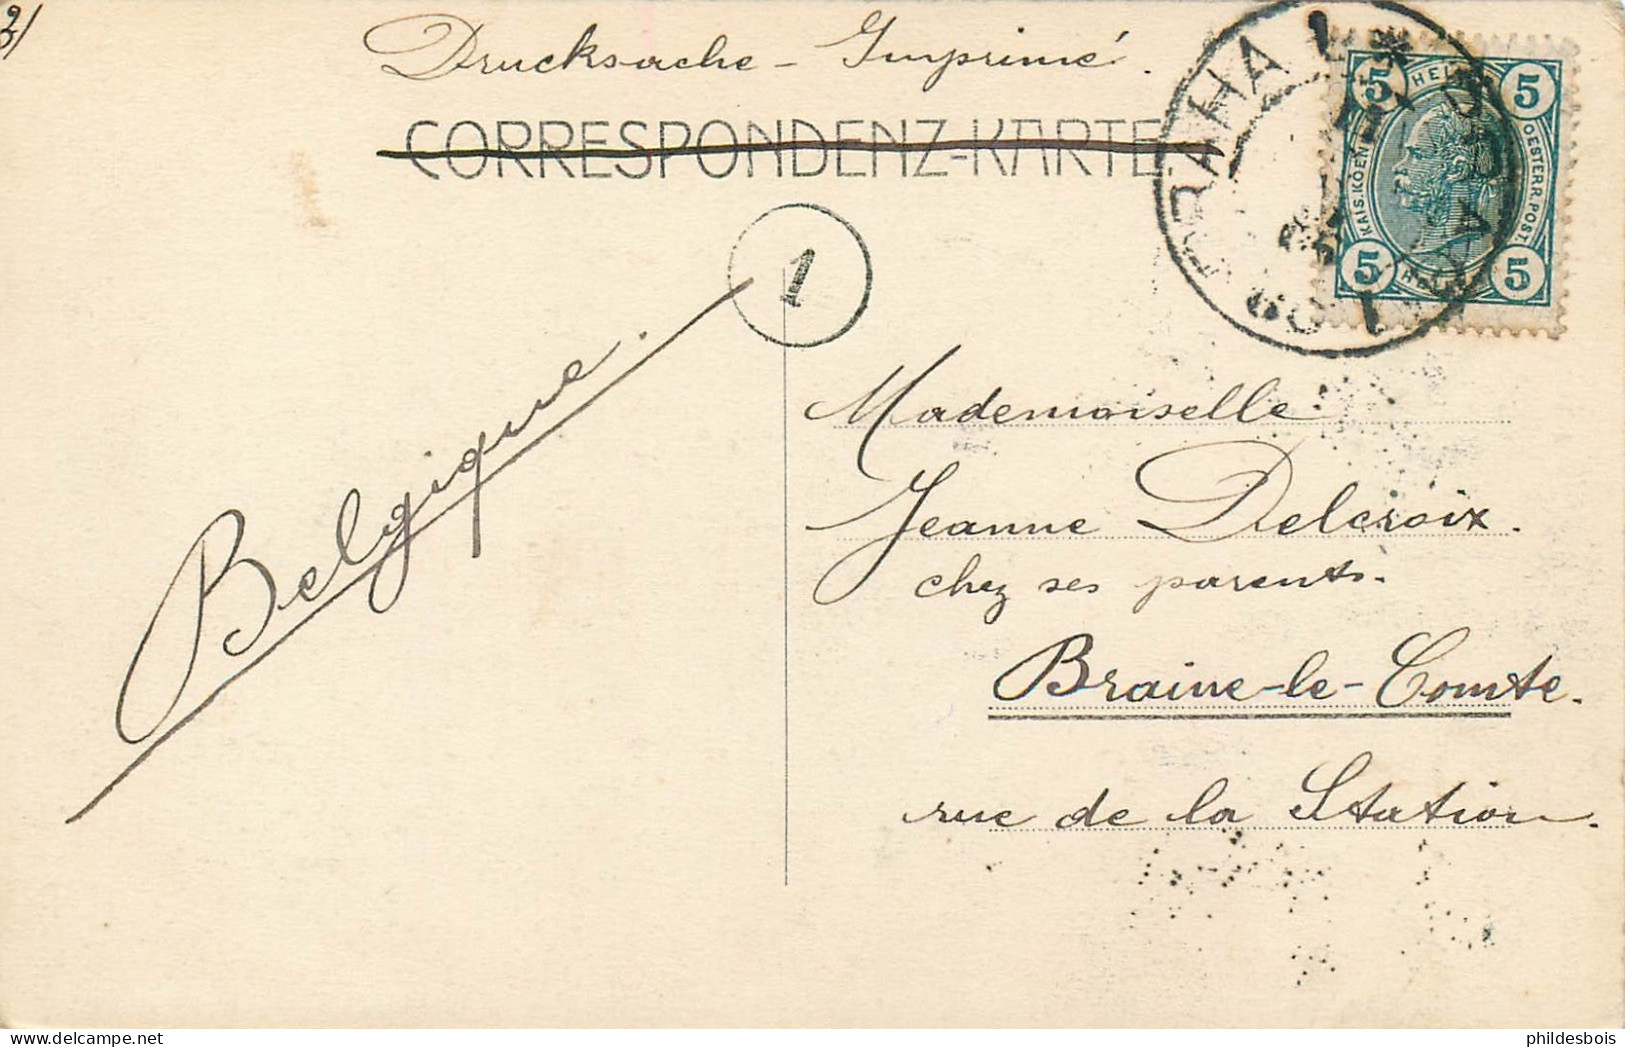 Drucksache - Imprimé.
CORRESPONDENZ-KARTE
PRAHA 1
5 HELLER 5
KAIS. KOEN
OESTERR. POST.
5 5
1
Belgique.
Mademoiselle
Jeanne Delcroix.
chez ses parents.
Braine-le-Comte.
rue de la Station.
phildesbois
delcampe.net